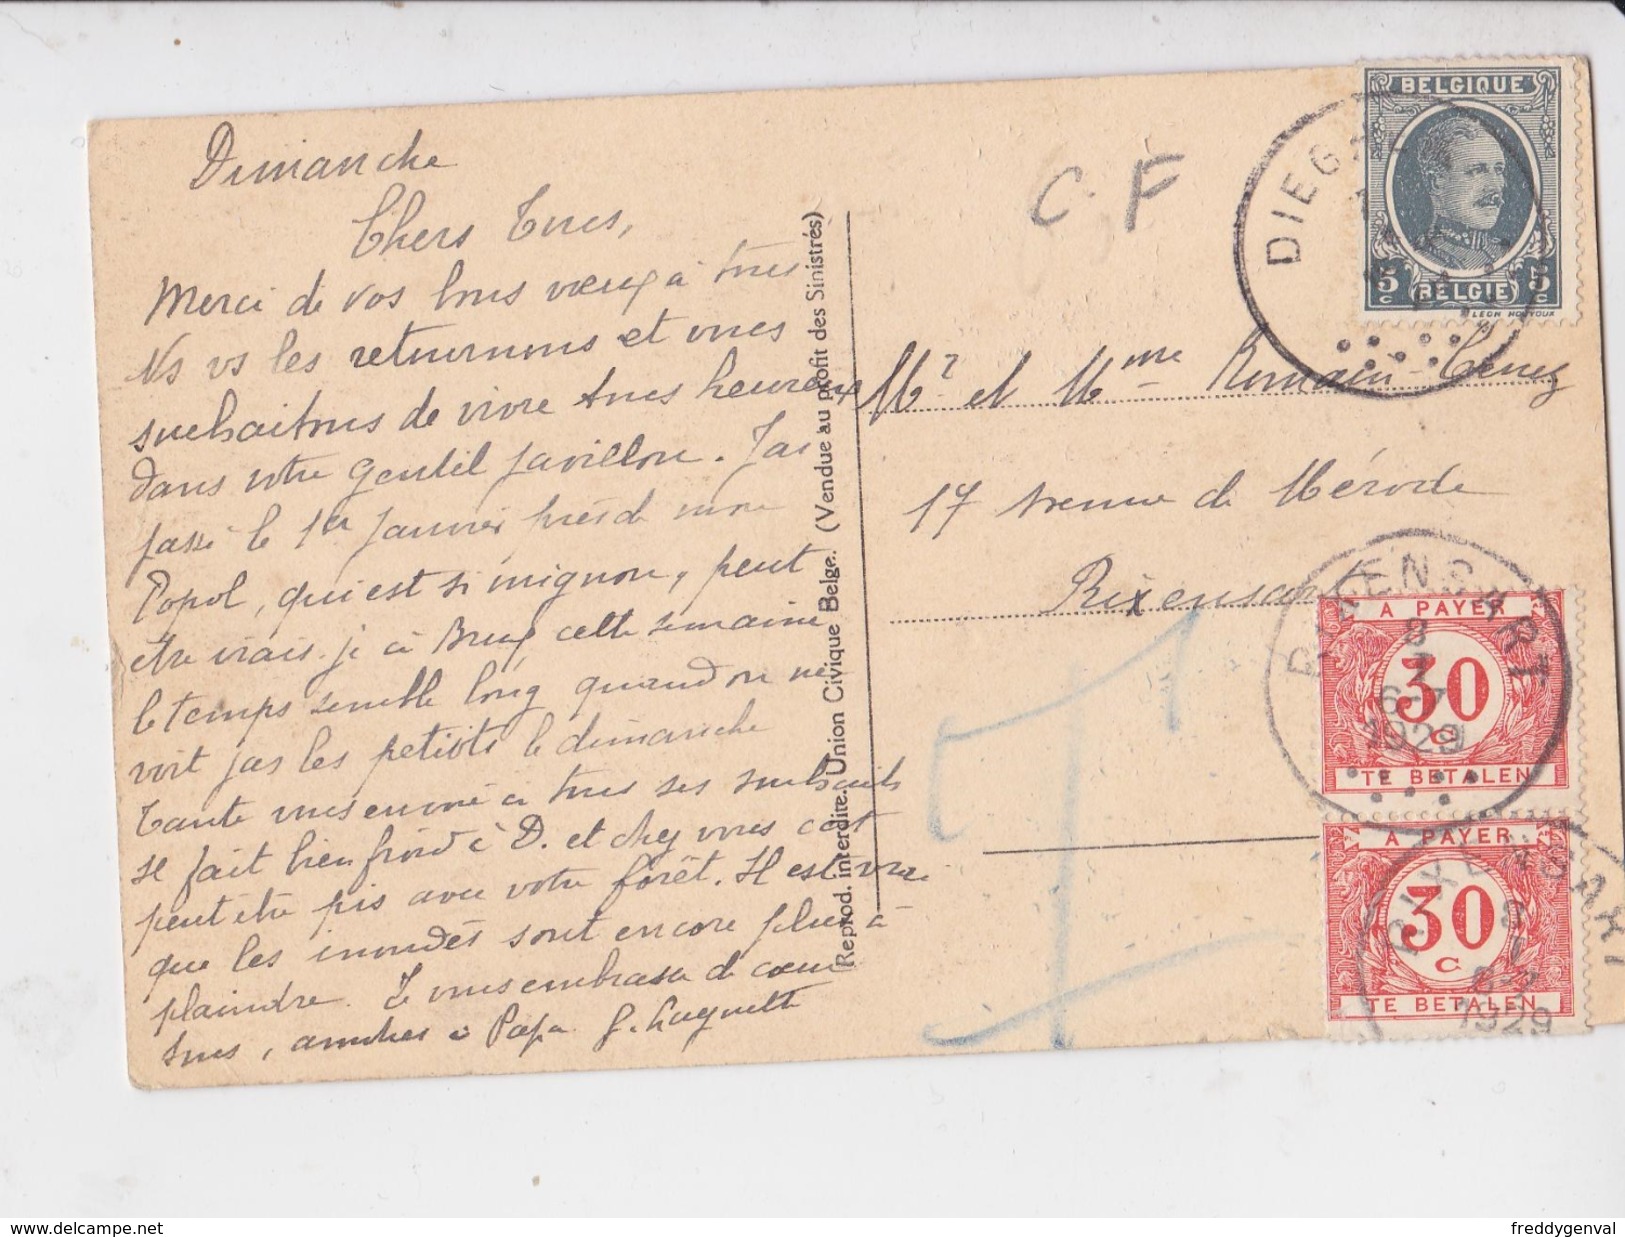 Dimanche
Chers Tous,
Merci de vos bons voeux à tous
Ns vs les retournons et vous
souhaitons de vivre tous heureux
dans votre gentil pavillon. J'ai
passé le 1er Janvier près de mon
Popol, qui est si mignon, peut
être irais-je à Brux cette semaine
le temps semble long quand on ne
voit pas les petiots le dimanche
Tante vous envoie à tous ses souhaits
Il fait bien froid à D. et chez vous c'est
peut être pis avec votre forêt. Il est vrai
que les inondés sont encore plus à
plaindre. Je vous embrasse de coeur
tous, amitiés à Papa G. Huguette
Reprod. interdite. Union Civique Belge. (Vendue au profit des Sinistrés)
C. F
BELGIQUE
5 c
BELGIE
5 c
DIEG
Mr et Mme Romain
17 Avenue de Mérode
Rixensart
T 1
RIXENSART
8
6-7
1929
A PAYER
30
C
TE BETALEN
A PAYER
30
C
TE BETALEN
RIXENSART
8
1
6-7
1929
www.delcampe.net
freddygenval